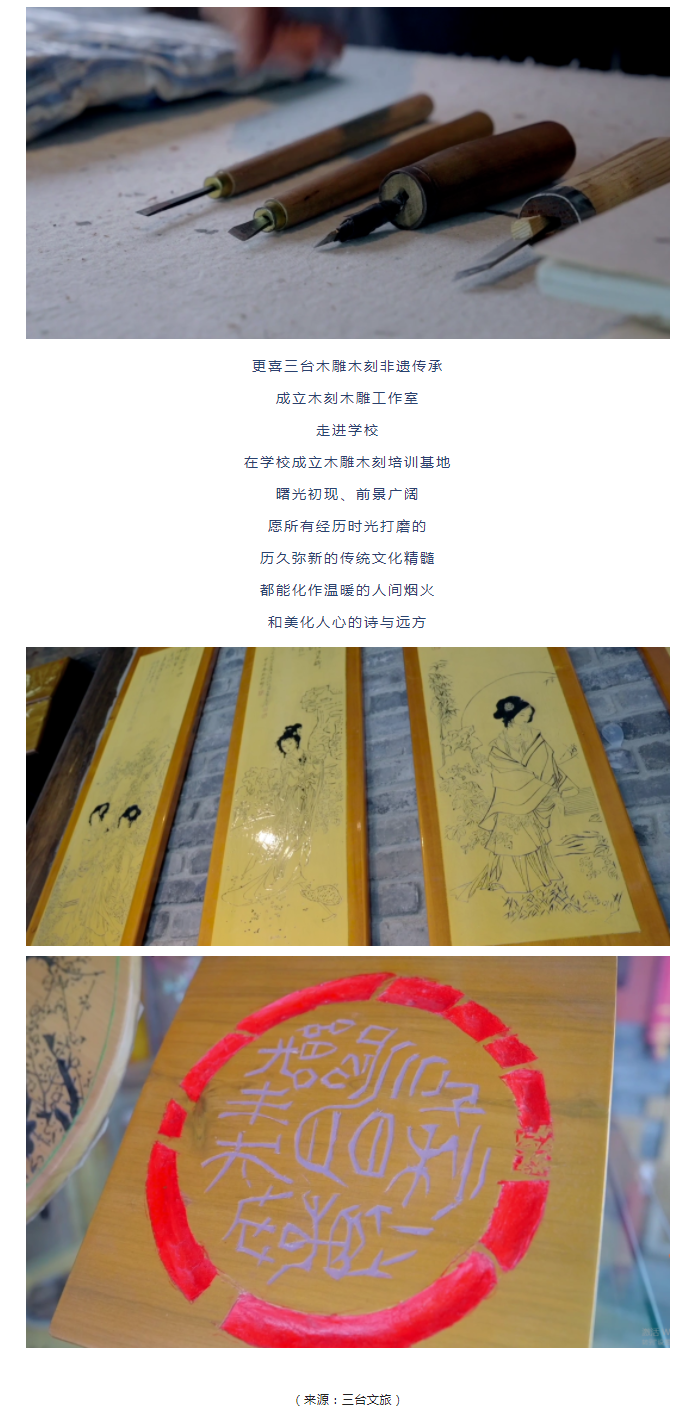 更喜三台木雕木刻非遗传承
成立木刻木雕工作室
走进学校
在学校成立木雕木刻培训基地
曙光初现、前景广阔
愿所有经历时光打磨的
历久弥新的传统文化精髓
都能化作温暖的人间烟火
和美化人心的诗与远方
（来源：三台文旅）